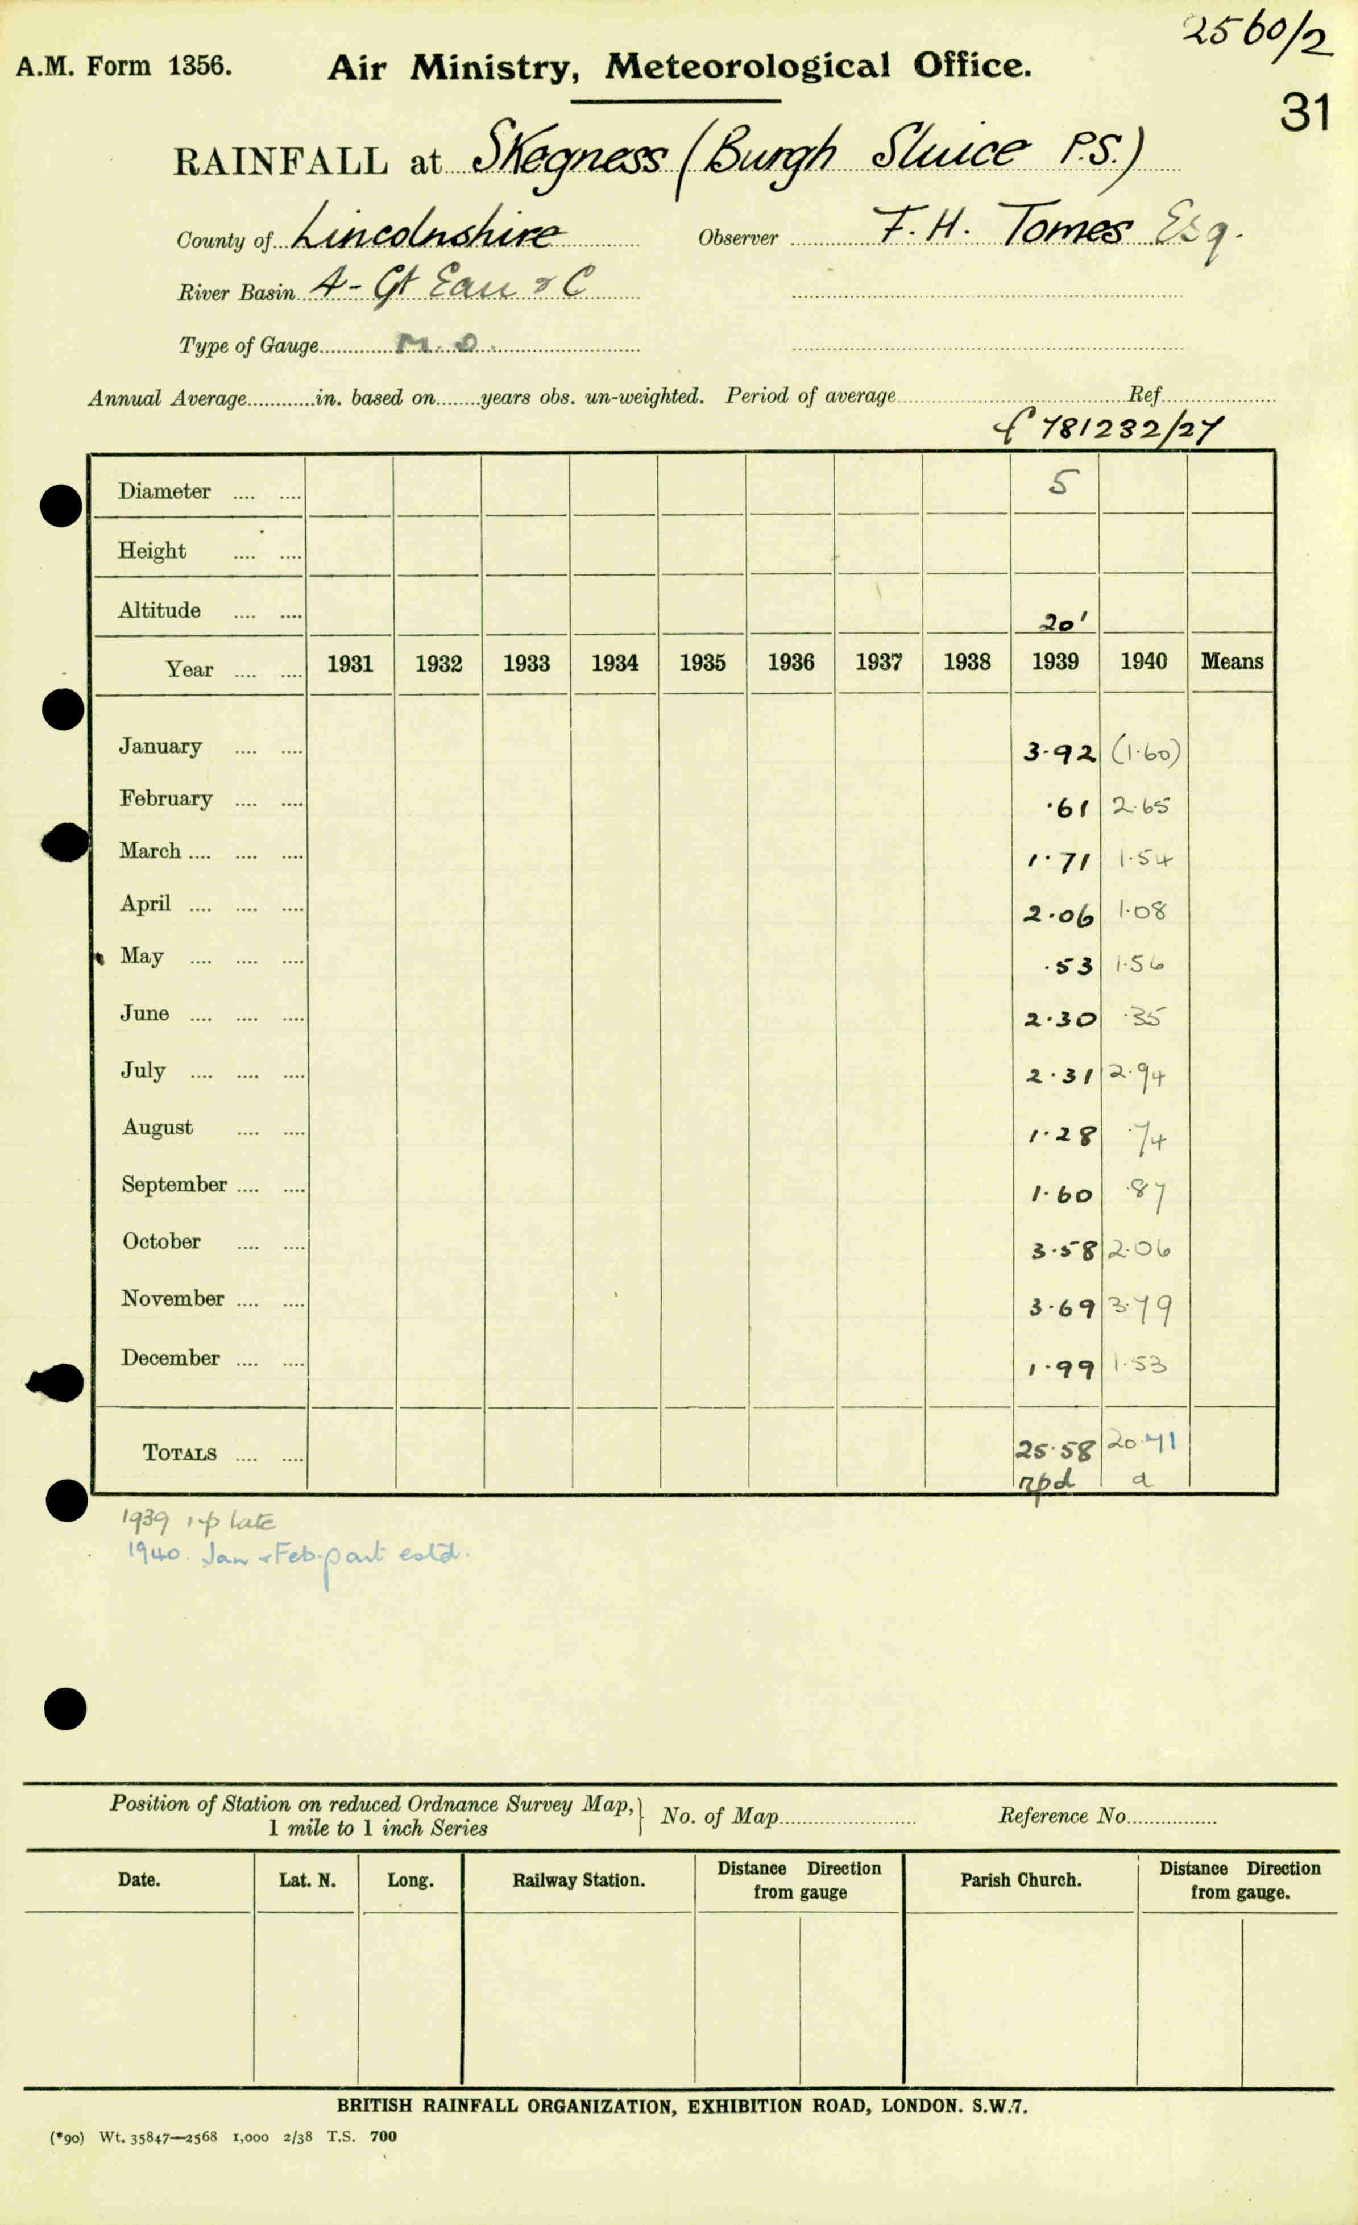 2560/2
A.M. Form 1356. Air Ministry, Meteorological Office.
31
RAINFALL at Skegness (Burgh Sluice P.S.)
County of Lincolnshire Observer F. H. Tomes Esq.
River Basin 4 - Gt Eau & C
Type of Gauge M. O.
Annual Average............in. based on........years obs. un-weighted. Period of average............ Ref............
781232/27
Diameter .... .... 5
Height .... ....
Altitude .... .... 20'
Year .... .... 1931 1932 1933 1934 1935 1936 1937 1938 1939 1940 Means
January .... .... 3.92 (1.60)
February .... .... .61 2.65
March .... .... .... 1.71 1.54
April .... .... .... 2.06 1.08
May .... .... .... .53 1.56
June .... .... .... 2.30 .35
July .... .... .... 2.31 2.94
August .... .... 1.28 .74
September .... .... 1.60 .87
October .... .... 3.58 2.06
November .... .... 3.69 3.79
December .... .... 1.99 1.53
TOTALS .... .... 25.58 20.71
rpd a
1939 rp late
1940. Jan & Feb. part estd.
Position of Station on reduced Ordnance Survey Map, 1 mile to 1 inch Series } No. of Map............ Reference No............
Date. Lat. N. Long. Railway Station. Distance from gauge Direction Parish Church. Distance from gauge. Direction
BRITISH RAINFALL ORGANIZATION, EXHIBITION ROAD, LONDON. S.W.7.
(*90) Wt. 35847—2568 1,000 2/38 T.S. 700